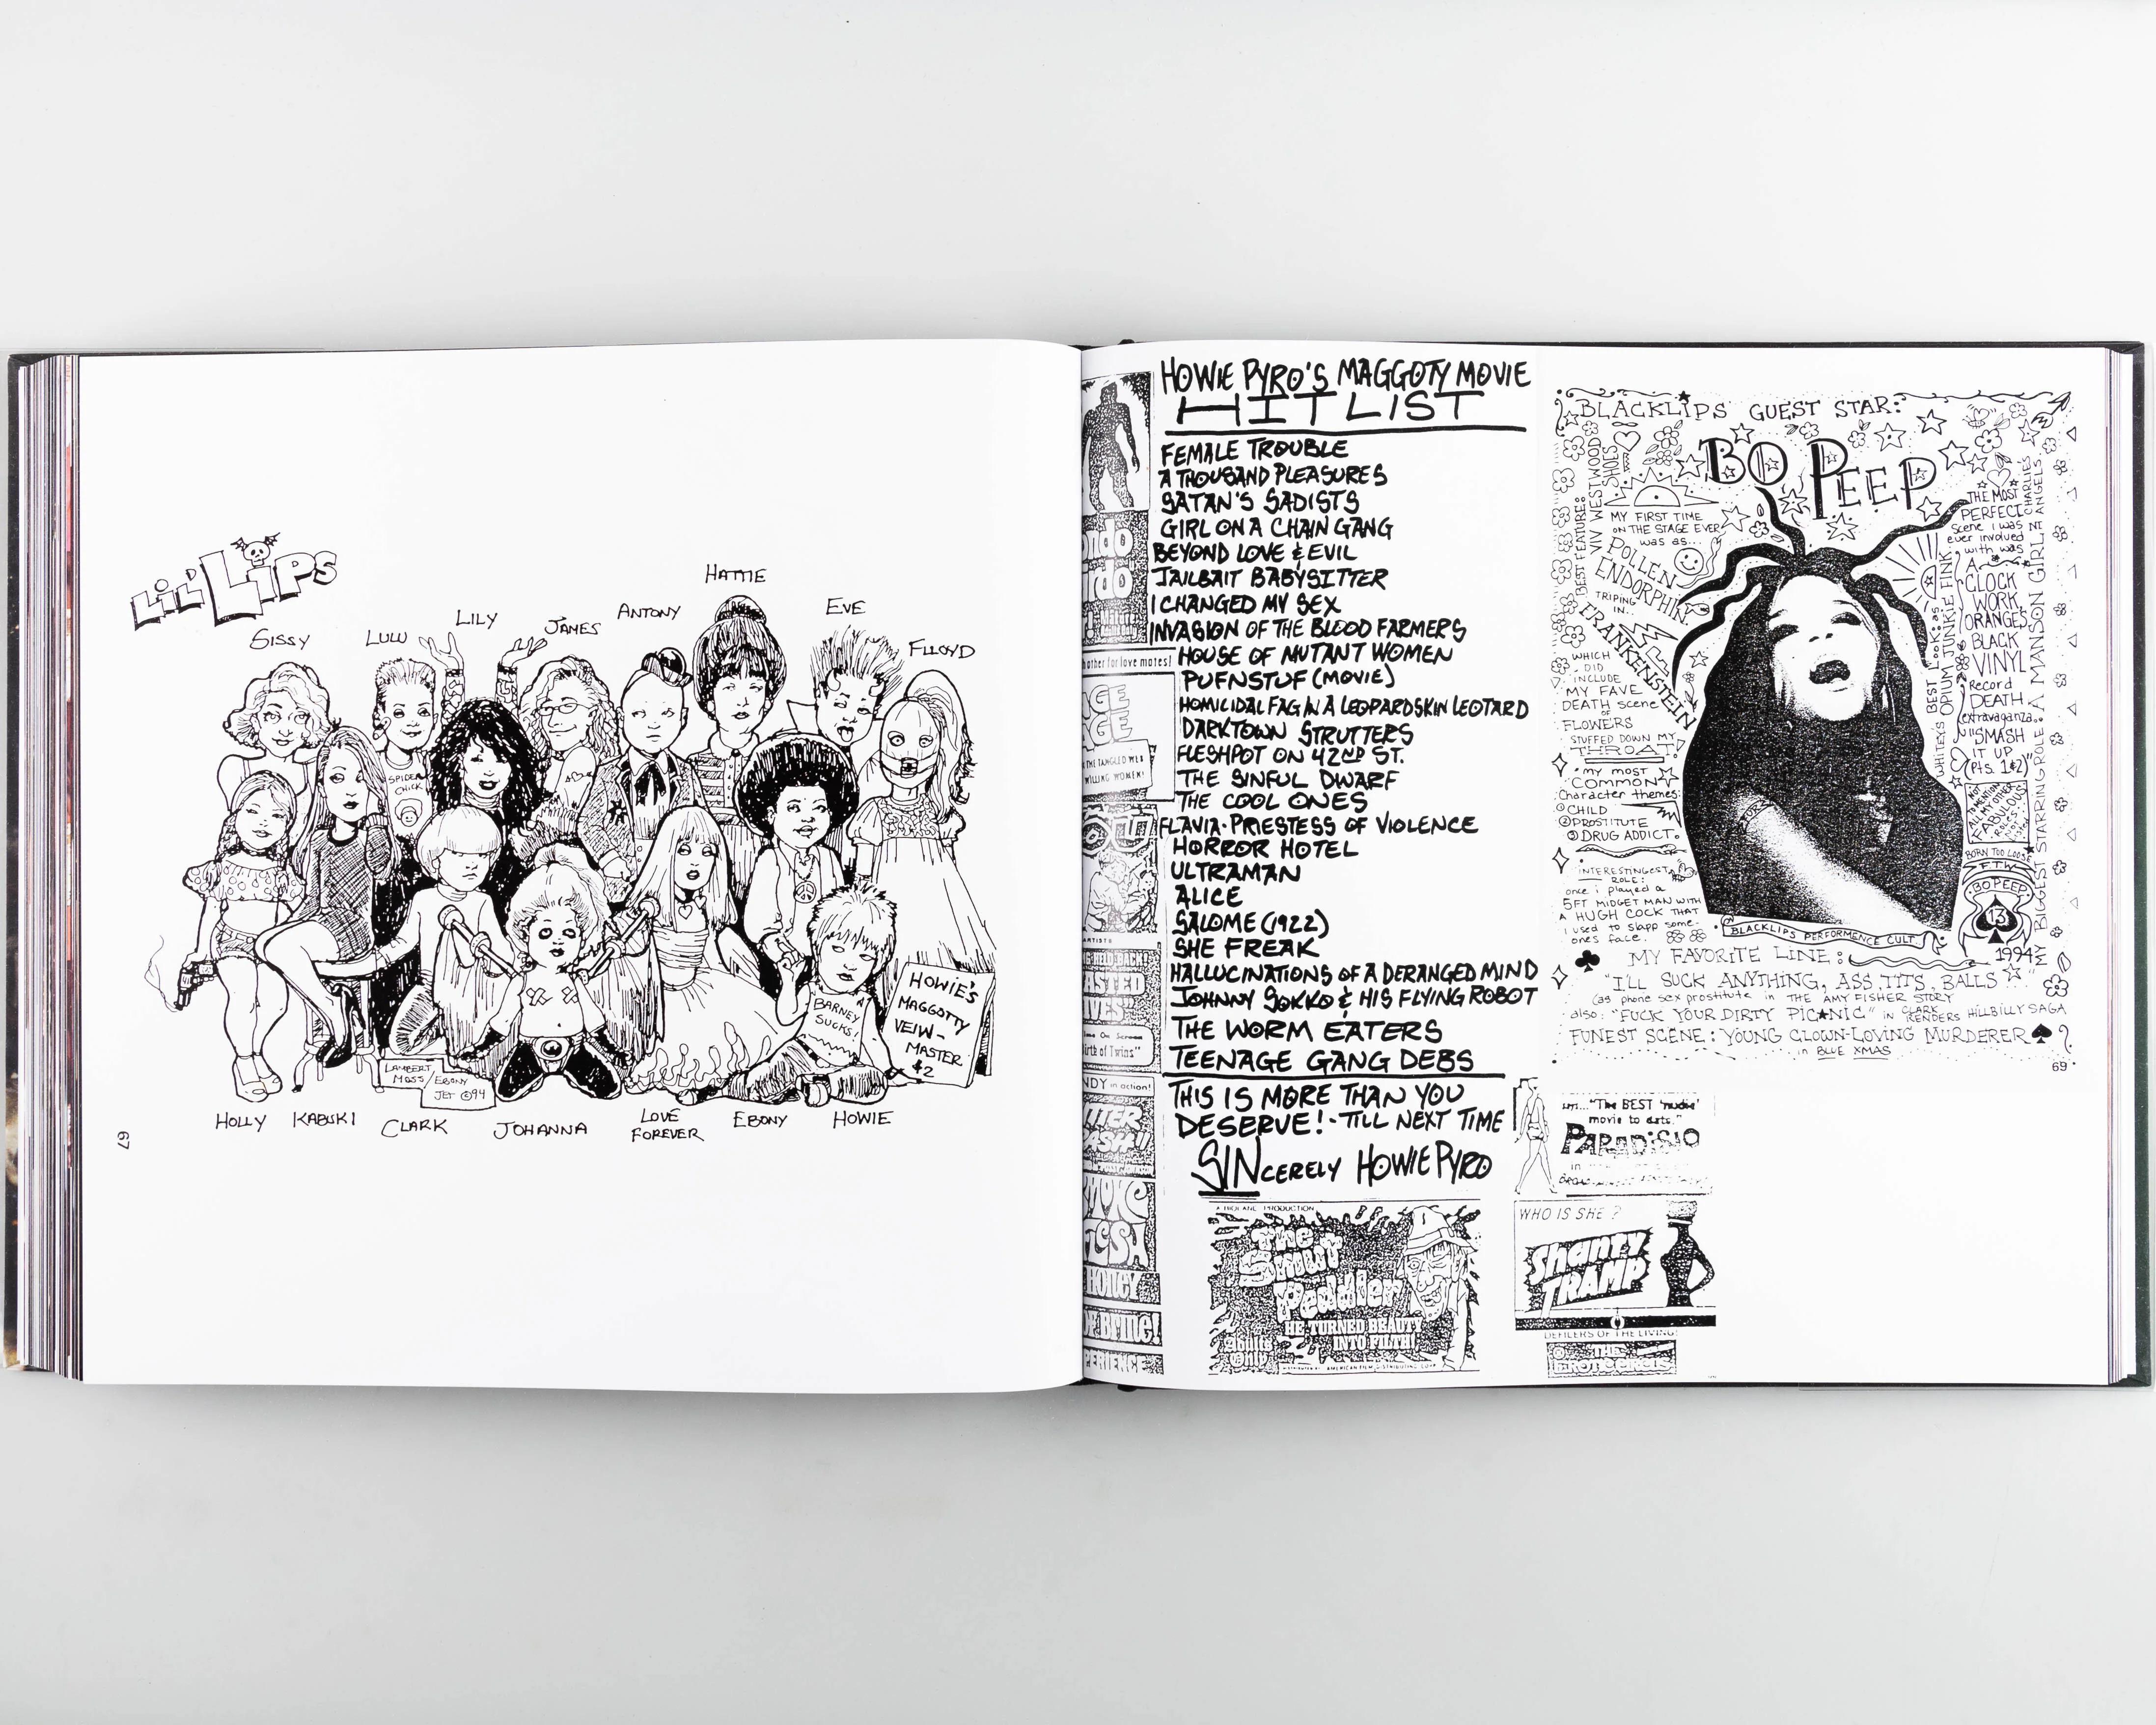 LIL' LIPS
SISSY
LULU
LILY
JAMES
ANTONY
HATTIE
EVE
FLLOYD
SPIDER
CHICK
BARNEY
SUCKS!
HOWIE'S
MAGGOTTY
VEIW-
MASTER
$2
LAMBERT
MOSS/EBONY
JET ©94
HOLLY
KABUKI
CLARK
JOHANNA
LOVE
FOREVER
EBONY
HOWIE
67
HOWIE PYRO'S MAGGOTY MOVIE
HIT LIST
FEMALE TROUBLE
A THOUSAND PLEASURES
SATAN'S SADISTS
GIRL ON A CHAIN GANG
BEYOND LOVE & EVIL
JAILBAIT BABYSITTER
I CHANGED MY SEX
INVASION OF THE BLOOD FARMERS
HOUSE OF MUTANT WOMEN
PUFNSTUF (MOVIE)
HOMICIDAL FAG IN A LEOPARDSKIN LEOTARD
DARKTOWN STRUTTERS
FLESHPOT ON 42ND ST.
THE SINFUL DWARF
THE COOL ONES
FLAVIA-PRIESTESS OF VIOLENCE
HORROR HOTEL
ULTRAMAN
ALICE
SALOME (1922)
SHE FREAK
HALLUCINATIONS OF A DERANGED MIND
JOHNNY SOKKO & HIS FLYING ROBOT
THE WORM EATERS
TEENAGE GANG DEBS
THIS IS MORE THAN YOU
DESERVE! - TILL NEXT TIME
SINCERELY HOWIE PYRO
other for love mates!
WILLING WOMEN!
irth of Twins"
NDY in action!
FLESH
HONEY
PERIENCE
PRODUCTION
The
Smut
Peddler
HE TURNED BEAUTY
INTO FILTH!
adults
only
"The BEST 'nudie'
movie to date."
PARADISIO
in
WHO IS SHE?
Shanty
TRAMP
DEFILERS OF THE LIVING!
THE
BLACKLIPS GUEST STAR:
BO PEEP
BEST FEATURE:
VIV WESTWOOD
SHOES
MY FIRST TIME
ON THE STAGE EVER
was as...
POLLEN
ENDORPHIN
TRIPING
IN...
FRANKENSTEIN
WHICH
DID
INCLUDE
MY FAVE
DEATH scene
of
FLOWERS
STUFFED DOWN MY
THROAT
my most
COMMON
Character themes:
① CHILD
② PROSTITUTE
③ DRUG ADDICT.
INTERESTINGEST
ROLE:
once i played a
5FT MIDGET MAN WITH
A HUGH COCK THAT
I used to slapp some-
ones face.
THE MOST
PERFECT
Scene i was
ever involved
with was
A
CLOCK
WORK
ORANGES
BLACK
VINYL
Record
DEATH
extravaganza..
"SMASH
IT UP
(Pts. 1&2)"
BEST LOOK: as
WHITEYS OPIUM JUNKIE FINK
MY BIGGEST STARRING ROLE A MANSON GIRL IN
CHARLIES
ANGELS.
NOT
TO MENTION
ALL MY OTHER
FABULOUS
ROLES
BORN TOO LOOSE
FTW
BO PEEP
13
1994
BLACKLIPS PERFORMENCE CULT.
MY FAVORITE LINE:
"I'LL SUCK ANYTHING, ASS, TITS, BALLS"
(as phone sex prostitute in THE AMY FISHER STORY
also: "FUCK YOUR DIRTY PICNIC" in CLARK
RENDERS HILLBILLY SAGA
FUNEST SCENE: YOUNG CLOWN-LOVING MURDERER
in BLUE XMAS
69